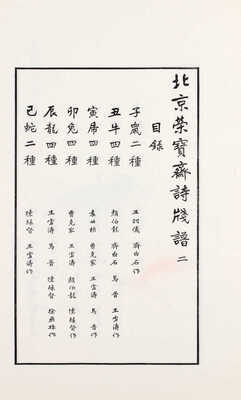 北京榮寶齋詩牋譜 二
目錄
子鼠二種 齊白石作
丑牛四種 顏伯龍 齊白石 馬晉 王雪濤作
寅虎四種 曹克家 王雪濤 馬晉作
卯兔四種 曹克家 王雪濤 顏伯龍 陳緣督作
辰龍四種 王雪濤 馬晉 陳緣督 徐燕孫作
巳蛇二種 陳緣督 王雪濤作